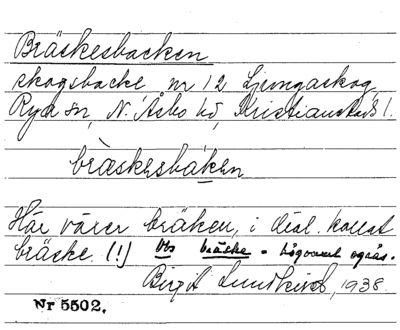 Bräskesbacken
skogsbacke nr 12 Ljungaskog
Ryd sn, N. Åsbo hd, Kristianstads l.
bræskesbáken
Här växer bräken, i dial. kallat
bräske. (!) Obs bräske =
Birgit Lundkvist, 1938.
Nr 5502.